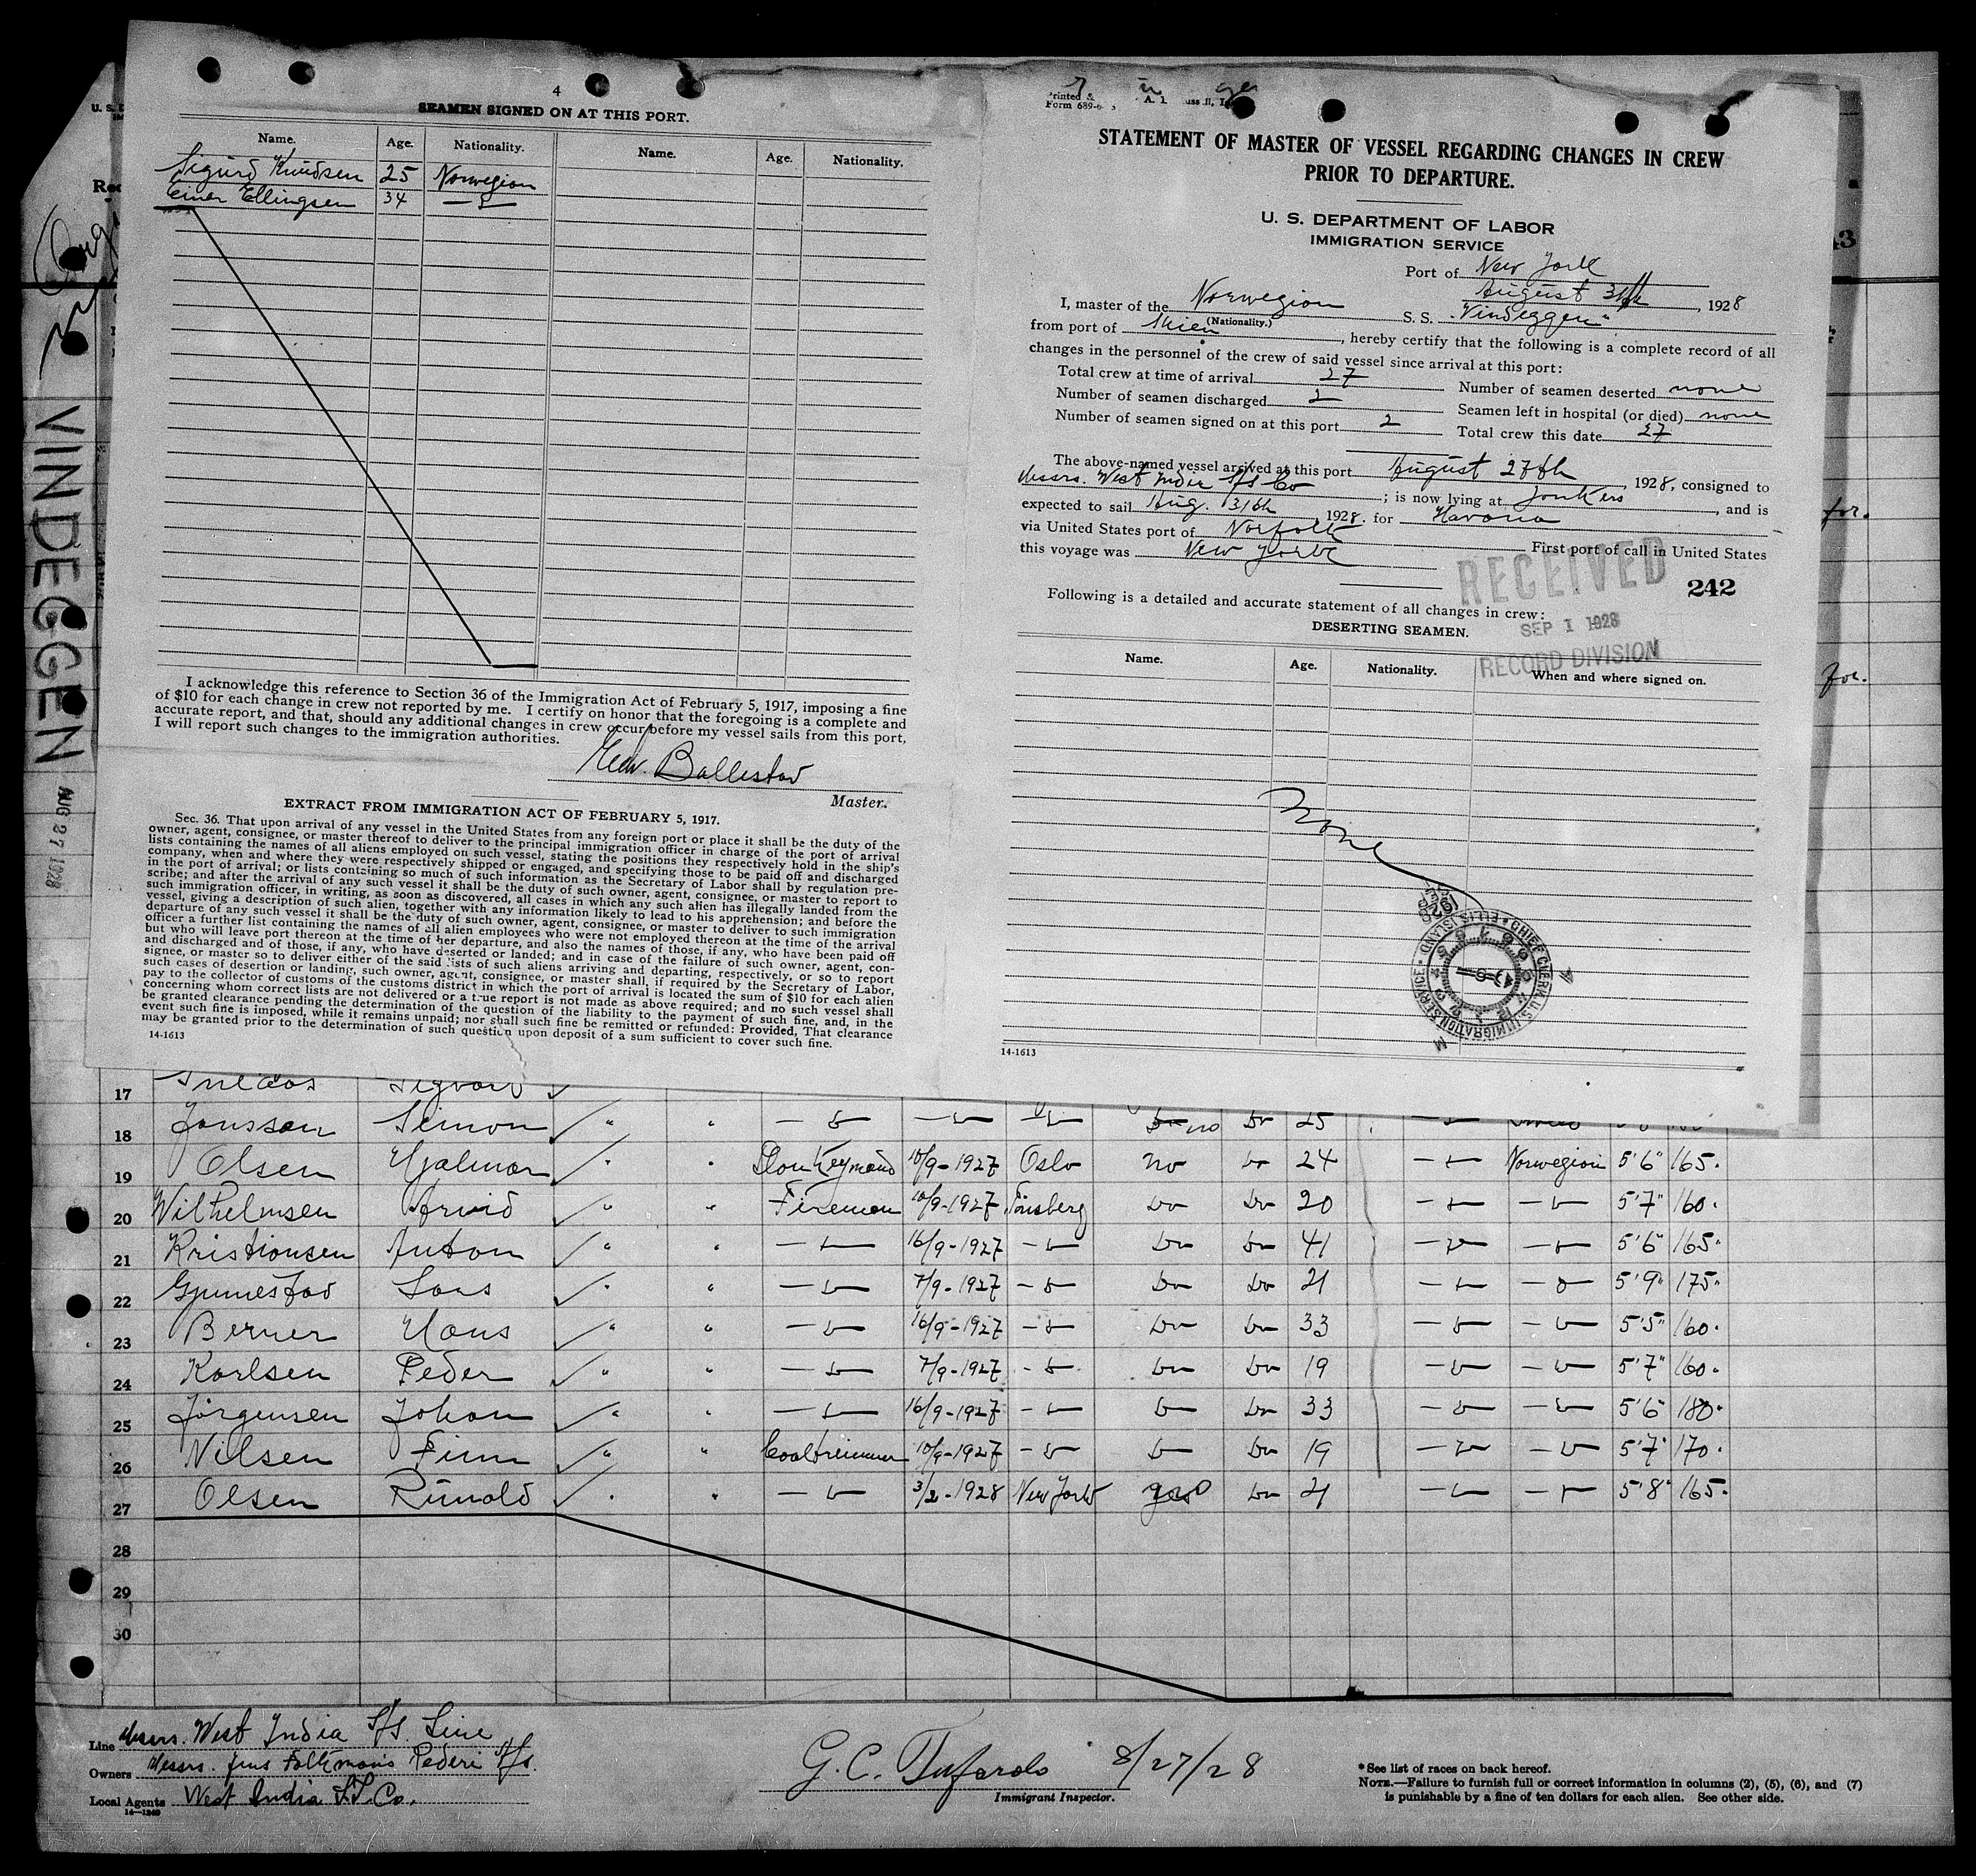 4
SEAMEN SIGNED ON AT THIS PORT.
Name. Age. Nationality. Name. Age. Nationality.
Sigurd Knudsen 25 Norwegian
Einar Ellingsen 34 — " —
I acknowledge this reference to Section 36 of the Immigration Act of February 5, 1917, imposing a fine
of $10 for each change in crew not reported by me. I certify on honor that the foregoing is a complete and
accurate report, and that, should any additional changes in crew occur before my vessel sails from this port,
I will report such changes to the immigration authorities.
Master.
EXTRACT FROM IMMIGRATION ACT OF FEBRUARY 5, 1917.
Sec. 36. That upon arrival of any vessel in the United States from any foreign port or place it shall be the duty of the
owner, agent, consignee, or master thereof to deliver to the principal immigration officer in charge of the port of arrival
lists containing the names of all aliens employed on such vessel, stating the positions they respectively hold in the ship's
company, when and where they were respectively shipped or engaged, and specifying those to be paid off and discharged
in the port of arrival; or lists containing so much of such information as the Secretary of Labor shall by regulation pre-
scribe; and after the arrival of any such vessel it shall be the duty of such owner, agent, consignee, or master to report to
such immigration officer, in writing, as soon as discovered, all cases in which any such alien has illegally landed from the
vessel, giving a description of such alien, together with any information likely to lead to his apprehension; and before the
departure of any such vessel it shall be the duty of such owner, agent, consignee, or master to deliver to such immigration
officer a further list containing the names of all alien employees who were not employed thereon at the time of the arrival
but who will leave port thereon at the time of her departure, and also the names of those, if any, who have been paid off
and discharged and of those, if any, who have deserted or landed; and in case of the failure of such owner, agent, con-
signee, or master so to deliver either of the said lists of such aliens arriving and departing, respectively, or so to report
such cases of desertion or landing, such owner, agent, consignee, or master shall, if required by the Secretary of Labor,
pay to the collector of customs of the customs district in which the port of arrival is located the sum of $10 for each alien
concerning whom correct lists are not delivered or a true report is not made as above required; and no such vessel shall
be granted clearance pending the determination of the question of the liability to the payment of such fine, and, in the
event such fine is imposed, while it remains unpaid; nor shall such fine be remitted or refunded: Provided, That clearance
may be granted prior to the determination of such question upon deposit of a sum sufficient to cover such fine.
14-1613
STATEMENT OF MASTER OF VESSEL REGARDING CHANGES IN CREW
PRIOR TO DEPARTURE.
U. S. DEPARTMENT OF LABOR
IMMIGRATION SERVICE
Port of New York
August 31th, 1928
I, master of the Norwegian S. S. "Vindeggen"
(Nationality.)
from port of Skien, hereby certify that the following is a complete record of all
changes in the personnel of the crew of said vessel since arrival at this port:
Total crew at time of arrival 27 Number of seamen deserted none
Number of seamen discharged 2 Seamen left in hospital (or died) none
Number of seamen signed on at this port 2 Total crew this date 27
The above-named vessel arrived at this port August 27th, 1928, consigned to
Messrs. West India S/S Co; is now lying at Yonkers, and is
expected to sail Aug. 31th 1928. for Havana
via United States port of Norfolk First port of call in United States
this voyage was New York
242
RECEIVED
SEP 1 1928
RECORD DIVISION
Following is a detailed and accurate statement of all changes in crew:
DESERTING SEAMEN.
Name. Age. Nationality. When and where signed on.
None
CHIEF CLERK, U.S. IMMIGRATION SERVICE • ELLIS ISLAND
14-1613
VINDEGGEN
AUG 27 1928
17
18 Jonsson Simon 25
19 Olsen Hjalmar Donkeymand 10/9-1927 Oslo no Do 24 Norwegian 5'6" 165.
20 Wilhelmsen Arvid Fireman 10/9-1927 Tönsberg Do Do 20 5'7" 160.
21 Kristiansen Anton 16/9-1927 Do Do 41 5'6" 165.
22 Gunnestad Lars 7/9-1927 Do Do 21 5'9" 175.
23 Berner Hans 16/9-1927 Do Do 33 5'5" 160.
24 Karlsen Peder 7/9-1927 Do Do 19 5'7" 160.
25 Jörgensen Johan 16/9-1927 Do 33 5'6" 180.
26 Nilsen Finn Coaltrimmer 10/9-1927 Do 19 5'7" 170.
27 Olsen Runold 3/2-1928 New York yes Do 21 5'8" 165.
28
29
30
Line Messrs. West India S/S Line
Owners Messrs. Rederi A/S.
Local Agents West India S.S. Co.
G. C. Tufarolo 8/27/28
Immigrant Inspector.
* See list of races on back hereof.
NOTE.—Failure to furnish full or correct information in columns (2), (5), (6), and (7)
is punishable by a fine of ten dollars for each alien. See other side.